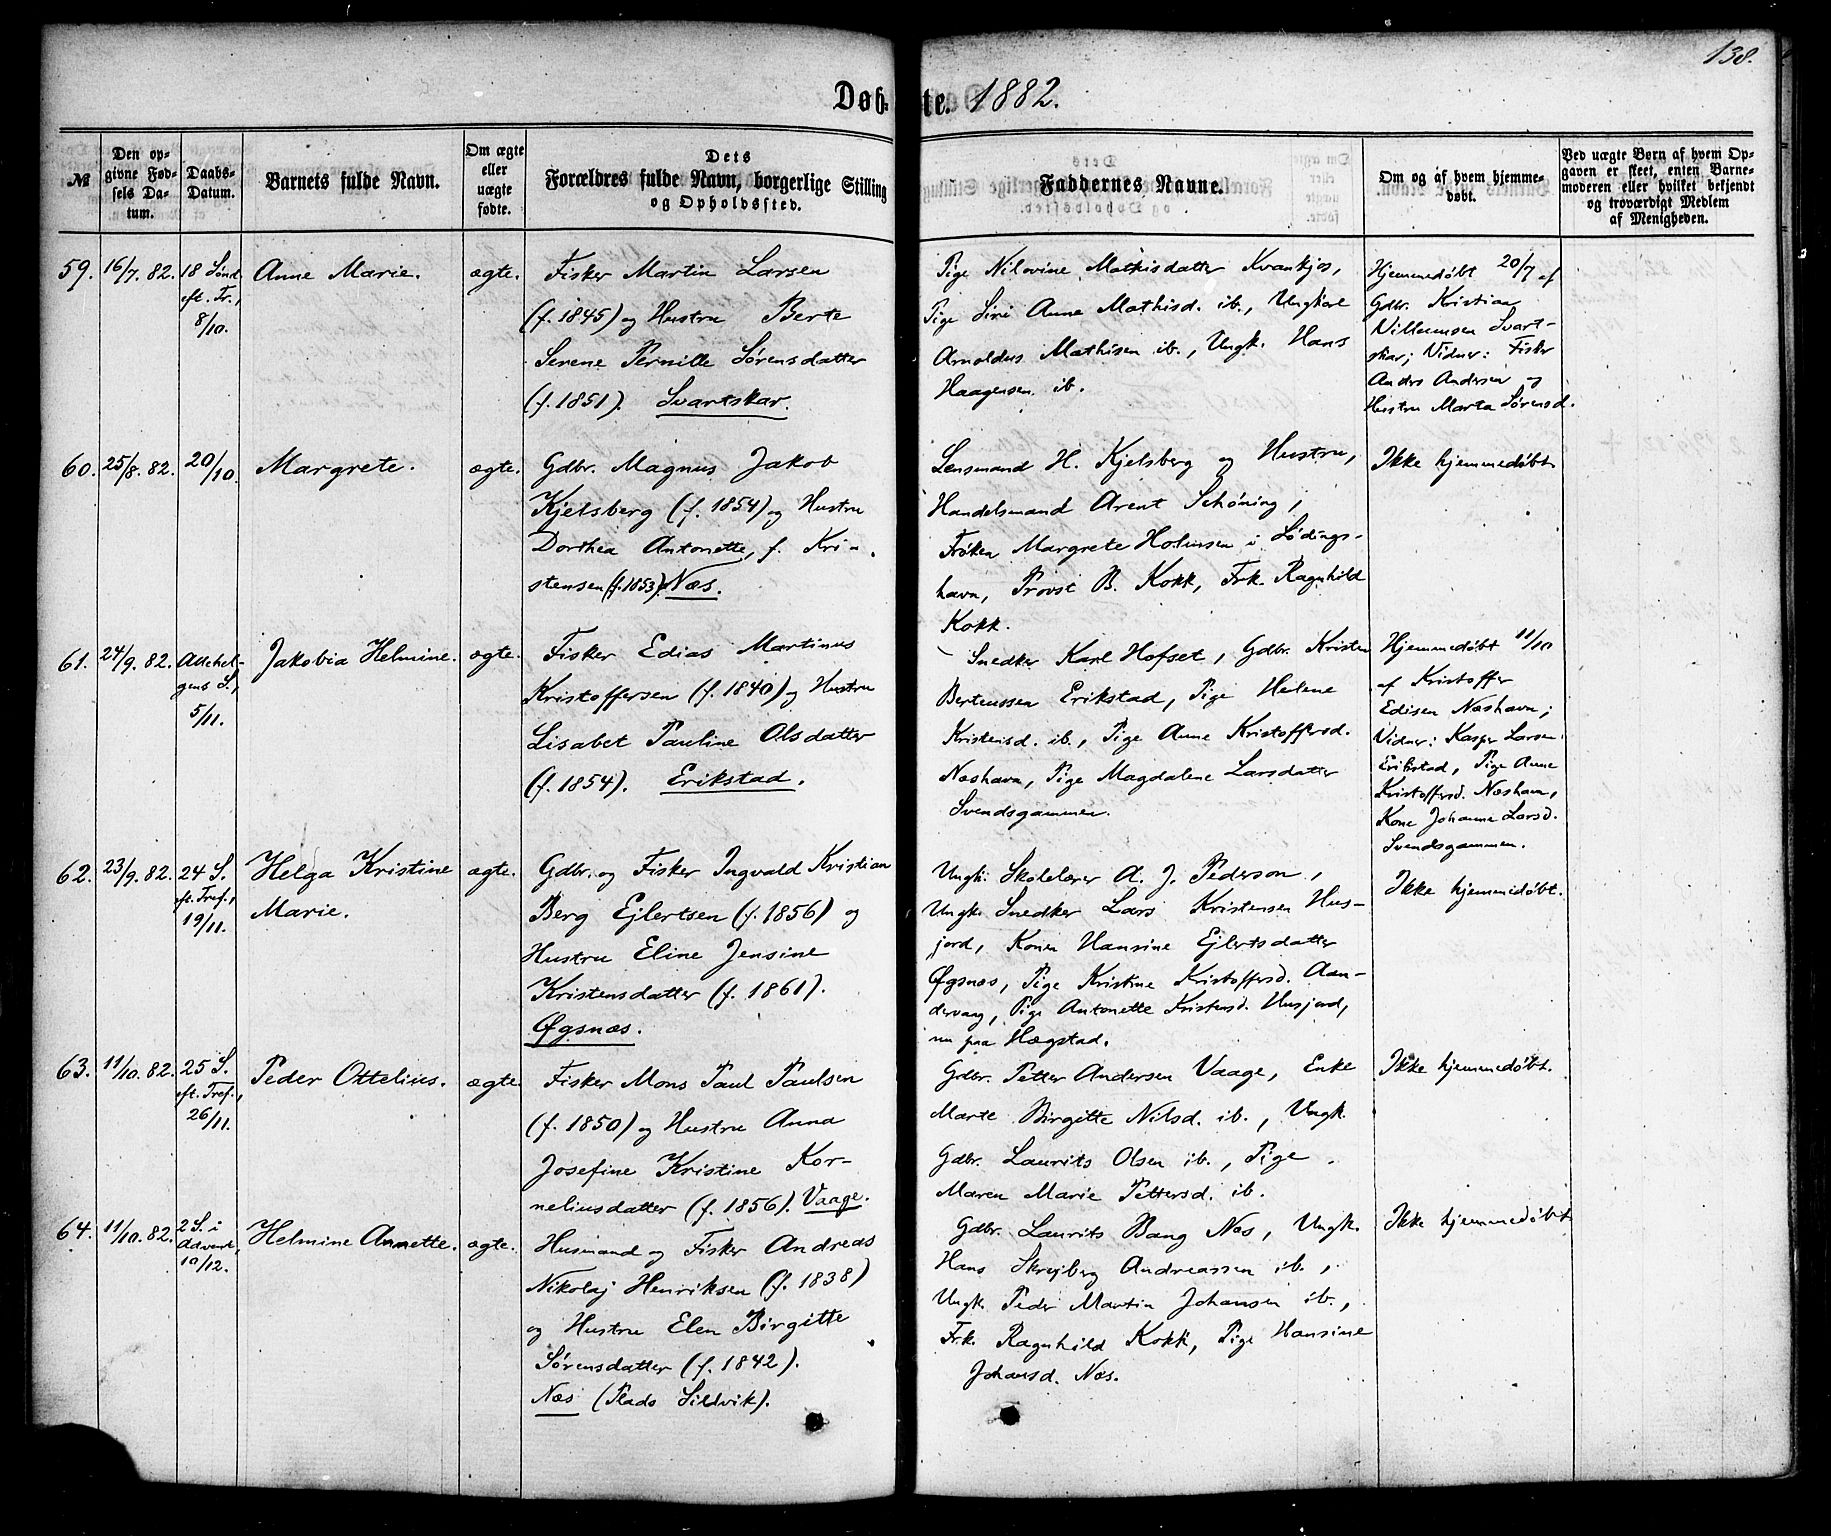 138.
Døbte. 1882.
№
Den opgivne Fødsels Datum.
Daabs-Datum.
Barnets fulde Navn.
Om ægte eller uægte fødte.
Dets Forældres fulde Navn, borgerlige Stilling og Opholdssted.
Faddernes Navne.
Om og af hvem hjemmedøbt.
Ved uægte Børn af hvem Opgaven er skeet, enten Barnemoderen eller hvilket bekjendt og troværdigt Medlem af Menigheden.
59.
16/7. 82.
18 Sønd.
eft. Tr.,
8/10.
Anne Marie.
ægte.
Fisker Martin Larsen
(f. 1845) og Hustru Berte
Serene Pernille Sørensdatter
(f. 1851). Svartskar.
Pige Nilovine Mathisdatter Kvankjos,
Pige Sini Anne Mathisd. ib., Ungkarl
Arnoldus Mathisen ib., Ungk. Hans
Haagensen ib.
Hjemmedøbt 20/7 af
Gdbr. Kristian
Villumsen Svart-
skar; Vidner: Fisker
Anders Andersen og
Hustru Marta Sørensd.
60.
25/8. 82.
20/10.
Margrete.
ægte.
Gdbr. Magnus Jakob
Kjelsberg (f. 1854) og Hustru
Dorthea Antonette, f. Kri-
stensen (f. 1853). Næs.
Lensmand H. Kjelsberg og Hustru,
Handelsmand Arent Schöning,
Frøken Margrete Holmsen i Lødings-
havn, Provst B. Kokk, Frk. Ragnhild
Kokk.
Ikke hjemmedøbt.
61.
24/9. 82.
Allehel-
gens S.,
5/11.
Jakobia Helmine.
ægte.
Fisker Edias Martinus
Kristoffersen (f. 1840) og Hustru
Lisabet Pauline Olsdatter
(f. 1854). Erikstad.
Snedker Karl Hofset, Gdbr. Kristen
Berteussen Erikstad, Pige Helene
Kristensd. ib., Pige Anne Kristoffersd.
Næshavn, Pige Magdalene Larsdatter
Svendsgammen.
Hjemmedøbt 11/10
af Kristoffer
Edisen Næshavn;
Vidner: Kasper Larsen
Erikstad, Pige Anne
Kristoffersd. Næshavn,
Kone Johanna Larsd.
Svendsgammen.
62.
23/9. 82.
24 S.
eft. Tref.,
19/11.
Helga Kristine
Marie.
ægte.
Gdbr. og Fisker Ingvald Kristian
Berg Ejlertsen (f. 1856) og
Hustru Eline Jensine
Kristensdatter (f. 1861).
Øgsnæs.
Ungk. Skolelærer A. J. Pederson,
Ungk. Snedker Lars Kristensen Hus-
jord, Konen Hansine Ejlertsdatter
Øgsnæs, Pige Kristine Kristoffersd. Aan-
dervaag, Pige Antonette Kristensd. Husjord,
nu paa Hægstad.
Ikke hjemmedøbt.
63.
11/10. 82.
25 S.
eft. Tref.,
26/11.
Peder Ottelius.
ægte.
Fisker Mons Paul Paulsen
(f. 1850) og Hustru Anna
Josefine Kristine Kor-
neliusdatter (f. 1856). Vaage.
Gdbr. Petter Andersen Vaage, Enke
Marte Birgitte Nilsd. ib., Ungk.
Gdbr. Laurits Olsen ib., Pige
Maren Marie Pettersd. ib.
Ikke hjemmedøbt.
64.
11/10. 82.
2 S. i
Advent,
10/12.
Helmine Annette.
ægte.
Husmand og Fisker Andreas
Nikolaj Henriksen (f. 1838)
og Hustru Elen Birgitte
Sørensdatter (f. 1842).
Næs (Plads Sildvik).
Gdbr. Laurits Bang Næs, Ungk.
Hans Skrejberg Andreassen ib.,
Ungk. Peder Martin Johansen ib.,
Frk. Ragnhild Kokk, Pige Hansine
Johansd. Næs.
Ikke hjemmedøbt